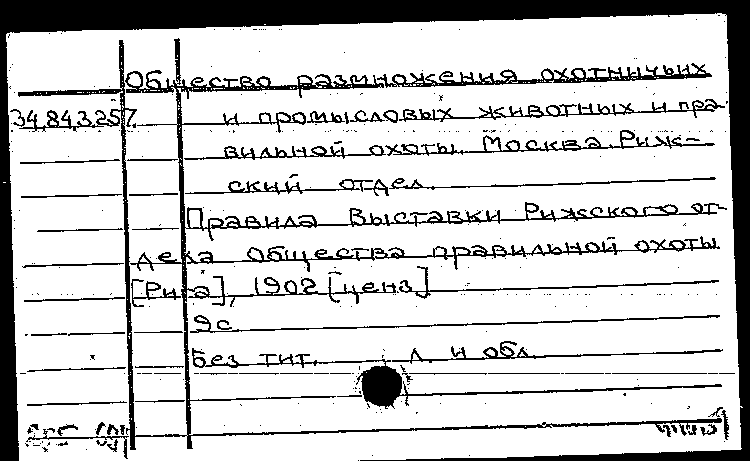 Общество размножения охотничьих
34.84.3.257. и промысловых животных и пра-
вильной охоты. Москва. Риж-
ский отдел.
Правила Выставки Рижского от-
дела Общества правильной охоты
[Рига], 1902 [ценз]
9с
Без тит. л. и обл.